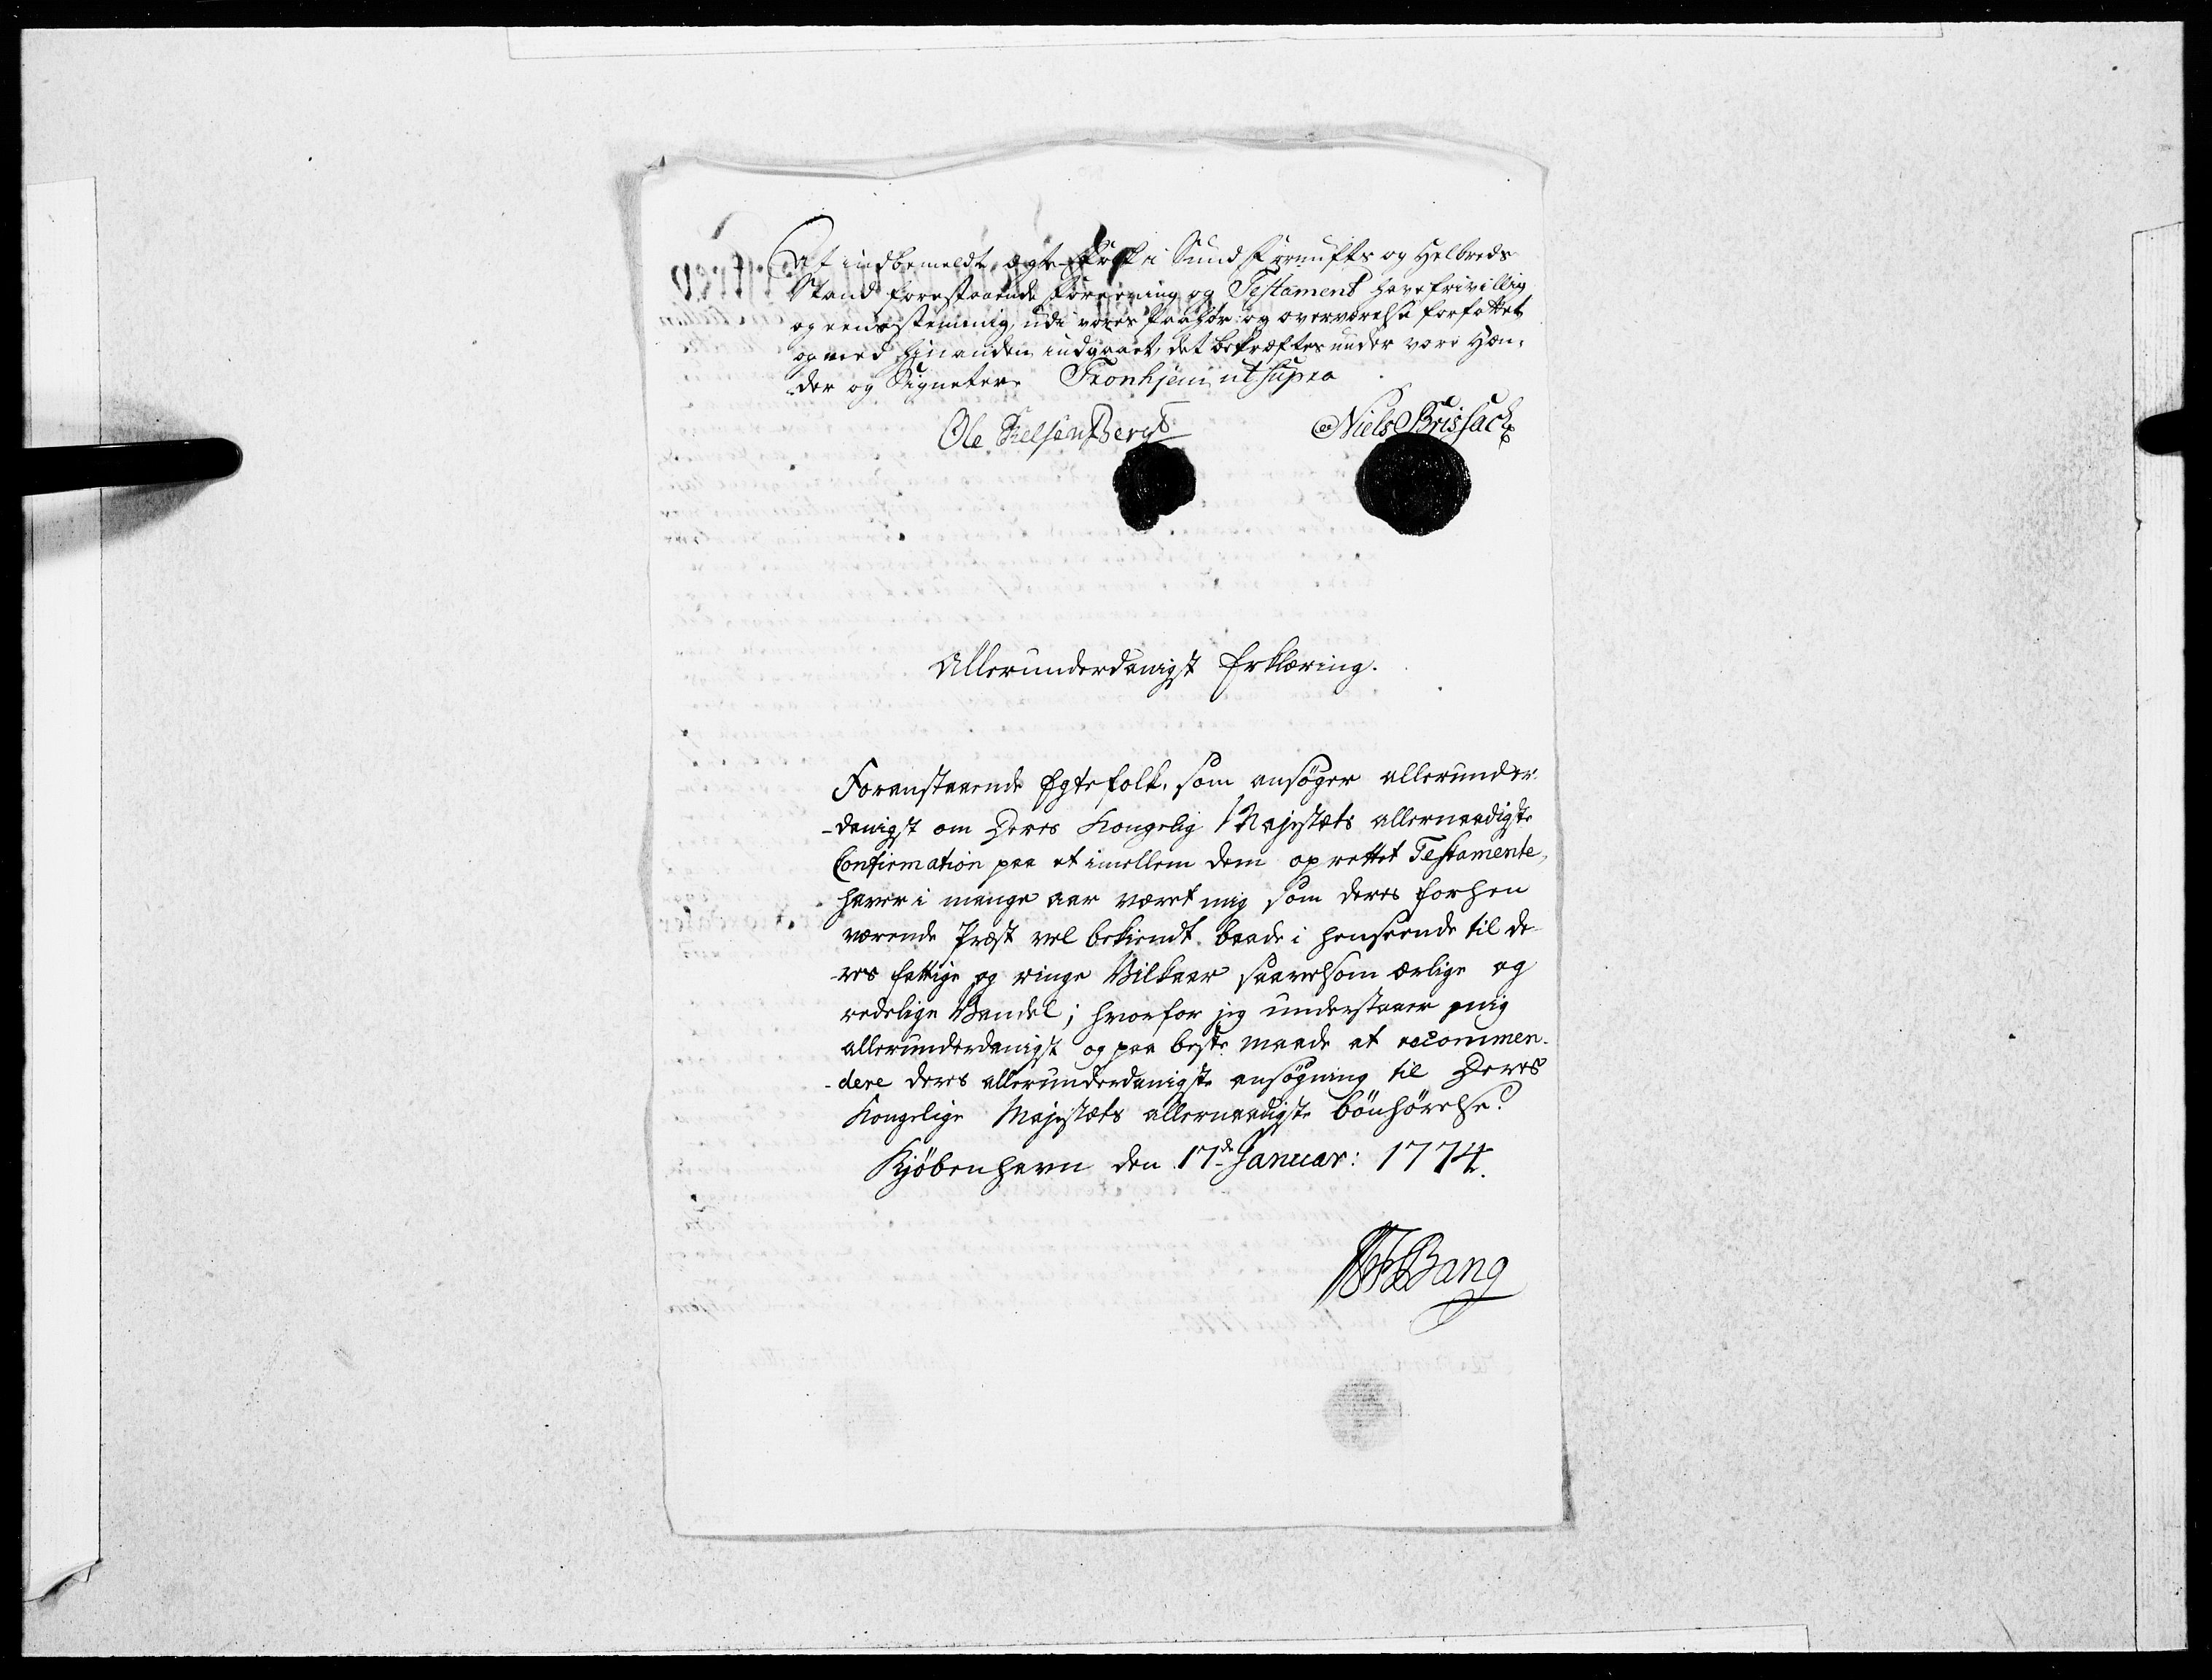 At indbemeldt ægte Folk i Sund Fornufts og Helbreds
Stand forestaaende Forening og Testament have frivillig
og eenstemmig, udi vores Paahør og overværelse forfattet
og med hinanden indgaaet, det bekræftes under vore Hæn-
der og Signeter. Tronhjem ut supra
Ole Nielsen Berg
Niels Brissach
Allerunderdanigst Erklæring.
Foranstaaende Egtefolk, som ansøger allerunder-
-danigst om Deres Kongelig Majestæts allernaadigste
Confirmation paa et imellem dem oprettet Testamente,
haver i mange aar været mig som deres forhen
værende Præst vel bekiendt, baade i henseende til de-
-res fattige og ringe Vilkaar saavelsom ærlige og
redelige Vandel; hvorfor jeg understaaer mig
allerunderdanigst og paa beste maade at recommen-
-dere deres allerunderdanigste ansøgning til Deres
Kongelige Majestæts allernaadigste bönhörelse.
Kjöbenhavn den 17de Januar: 1774.
Bang